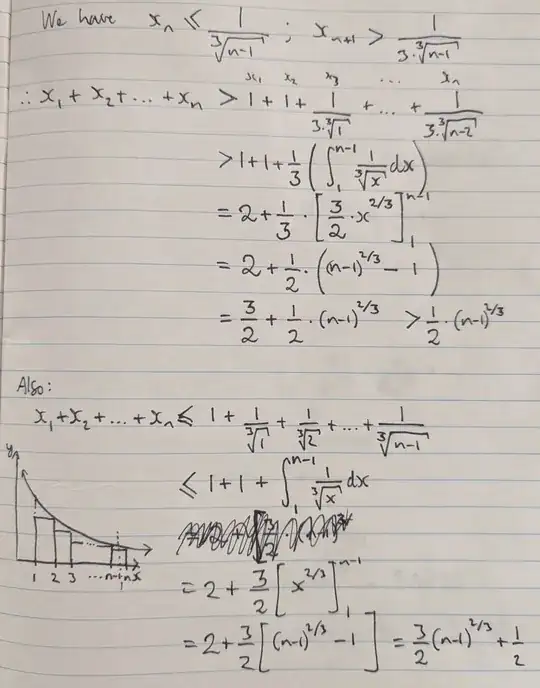 We have xₙ ≤ 1/∛(n-1) ; xₙ₊₁ > 1/(3·∛(n-1))
x₁ x₂ x₃ ... xₙ
∴ x₁ + x₂ + ... + xₙ > 1 + 1 + 1/(3·∛1) + ... + 1/(3·∛(n-2))
> 1 + 1 + 1/3 (∫₁ⁿ⁻¹ 1/∛x dx)
= 2 + 1/3 · [3/2 · x^(2/3)]₁ⁿ⁻¹
= 2 + 1/2 · ((n-1)^(2/3) - 1)
= 3/2 + 1/2 · (n-1)^(2/3) > 1/2 · (n-1)^(2/3)
Also:
x₁ + x₂ + ... + xₙ ≤ 1 + 1/∛1 + 1/∛2 + ... + 1/∛(n-1)
≤ 1 + 1 + ∫₁ⁿ⁻¹ 1/∛x dx
= 2 + 3/2 [x^(2/3)]₁ⁿ⁻¹
= 2 + 3/2 [(n-1)^(2/3) - 1] = 3/2 (n-1)^(2/3) + 1/2
y
1 2 3 ... n-1 n x